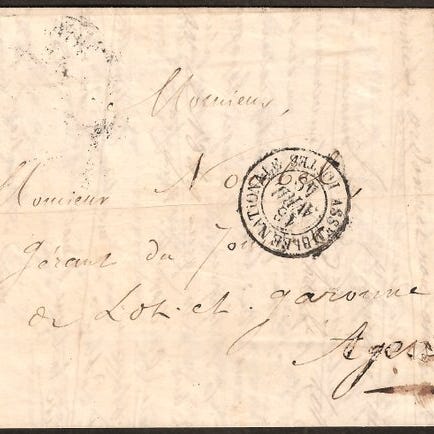 Monsieur,
Monsieur No
Gérant du Jou
de Lot-et-garonne
Agen
ASSEMBLEE NATIONALE POSTES
18
AVRIL